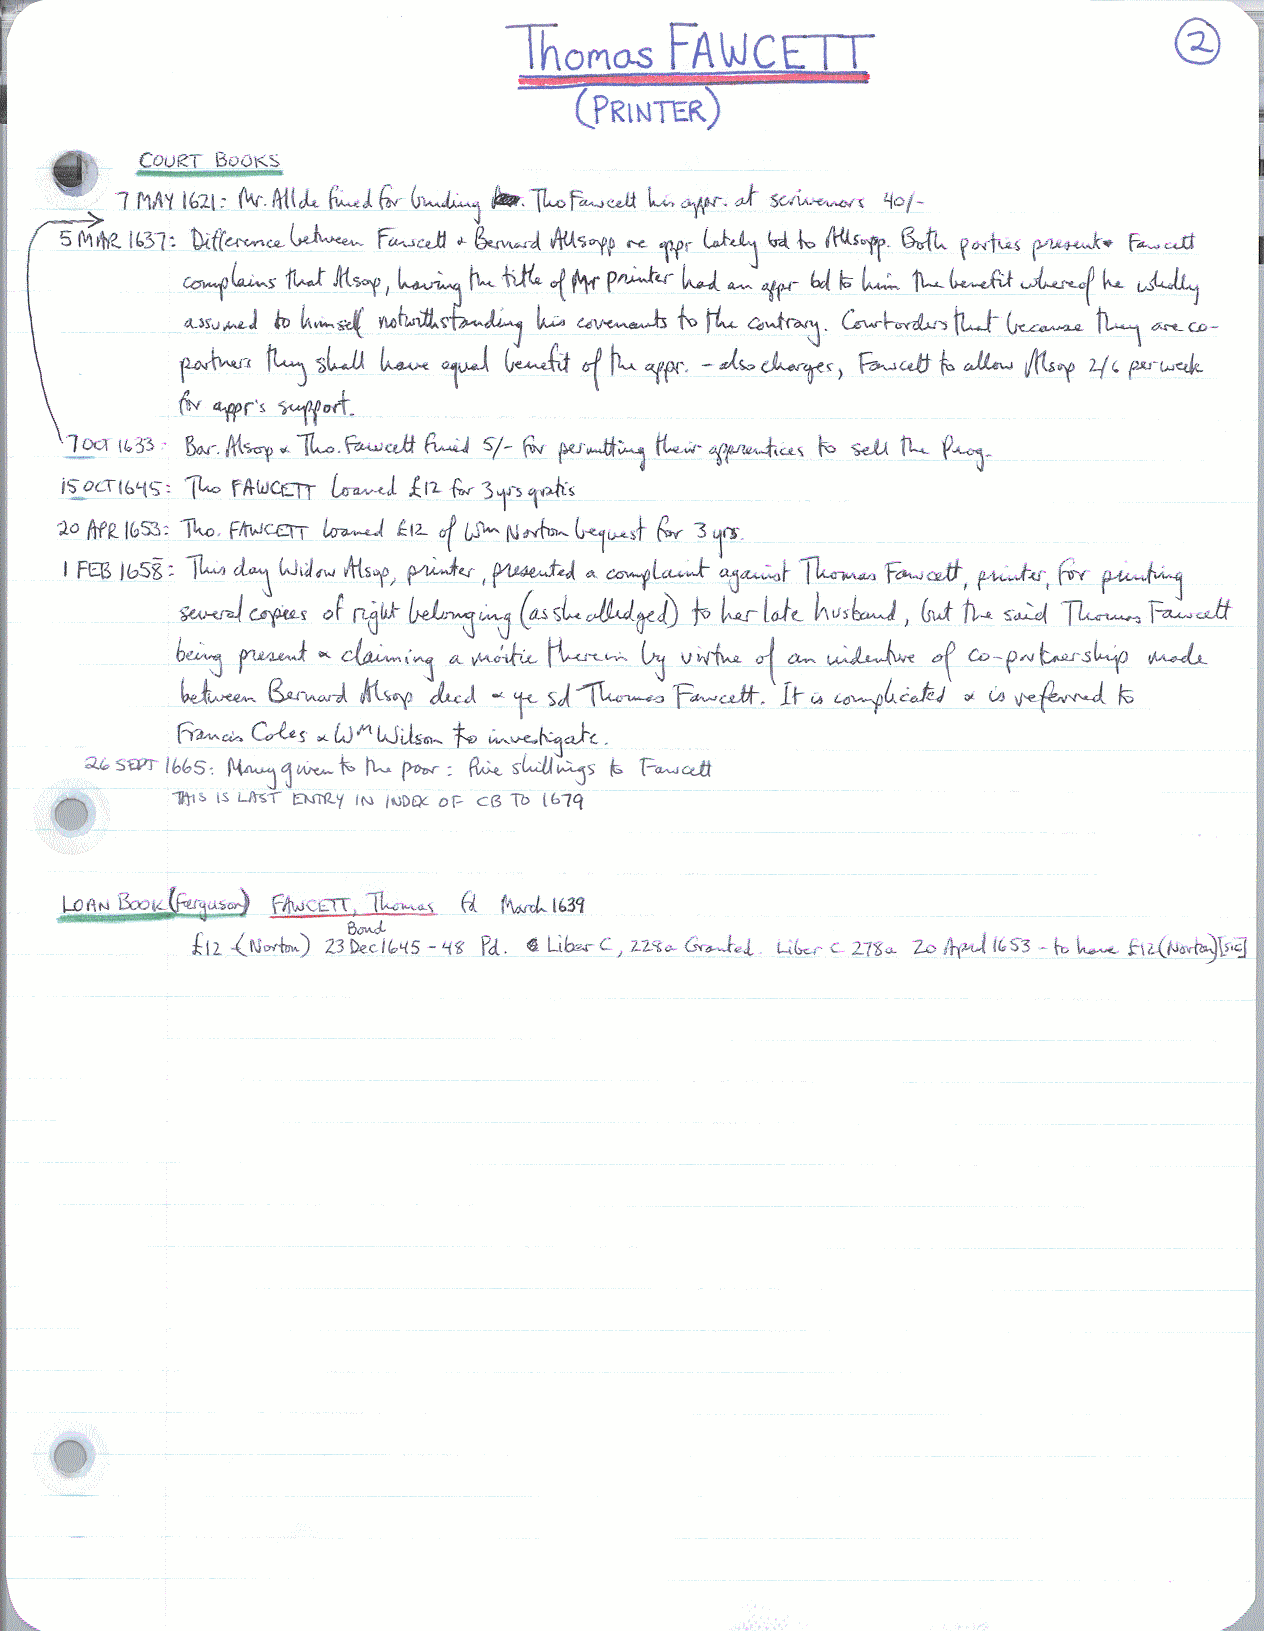 Thomas FAWCETT
2
(PRINTER)
COURT BOOKS
7 MAY 1621: Mr. Allde fined for binding Tho Fawcett his appr. at scriveners 40/-
5 MAR 1637: Difference between Fawcett & Bernard Allsopp re appr lately bd to Allsopp. Both parties present & Fawcett
complains that Alsop, having the title of Mr printer had an appr bd to him the benefit whereof he wholly
assumed to himself notwithstanding his covenants to the contrary. Court orders that because they are co-
partners they shall have equal benefit of the appr. - also charges, Fawcett to allow Alsop 2/6 per week
for appr's support.
7 OCT 1633: Bar. Alsop & Tho. Fawcett fined 5/- for permitting their apprentices to sell the Prog.
15 OCT 1645: Tho FAWCETT loaned £12 for 3 yrs gratis
20 APR 1653: Tho. FAWCETT loaned £12 of Wm Norton bequest for 3 yrs.
1 FEB 1658: This day Widow Alsop, printer, presented a complaint against Thomas Fawcett, printer, for printing
several copies of right belonging (as she alledged) to her late husband, but the said Thomas Fawcett
being present & claiming a moitie therein by virtue of an indenture of co-partnership made
between Bernard Alsop decd & ye sd Thomas Fawcett. It is complicated & is referred to
Francis Coles & Wm Wilson to investigate.
26 SEPT 1665: Money given to the poor: Five shillings to Fawcett
THIS IS LAST ENTRY IN INDEX OF CB TO 1679
LOAN BOOK (Ferguson) FAWCETT, Thomas fd March 1639
Bond
£12 (Norton) 23 Dec 1645-48 Pd. Liber C, 228a Granted. Liber C 278a 20 April 1653 - to have £12 (Norton) [SIC]